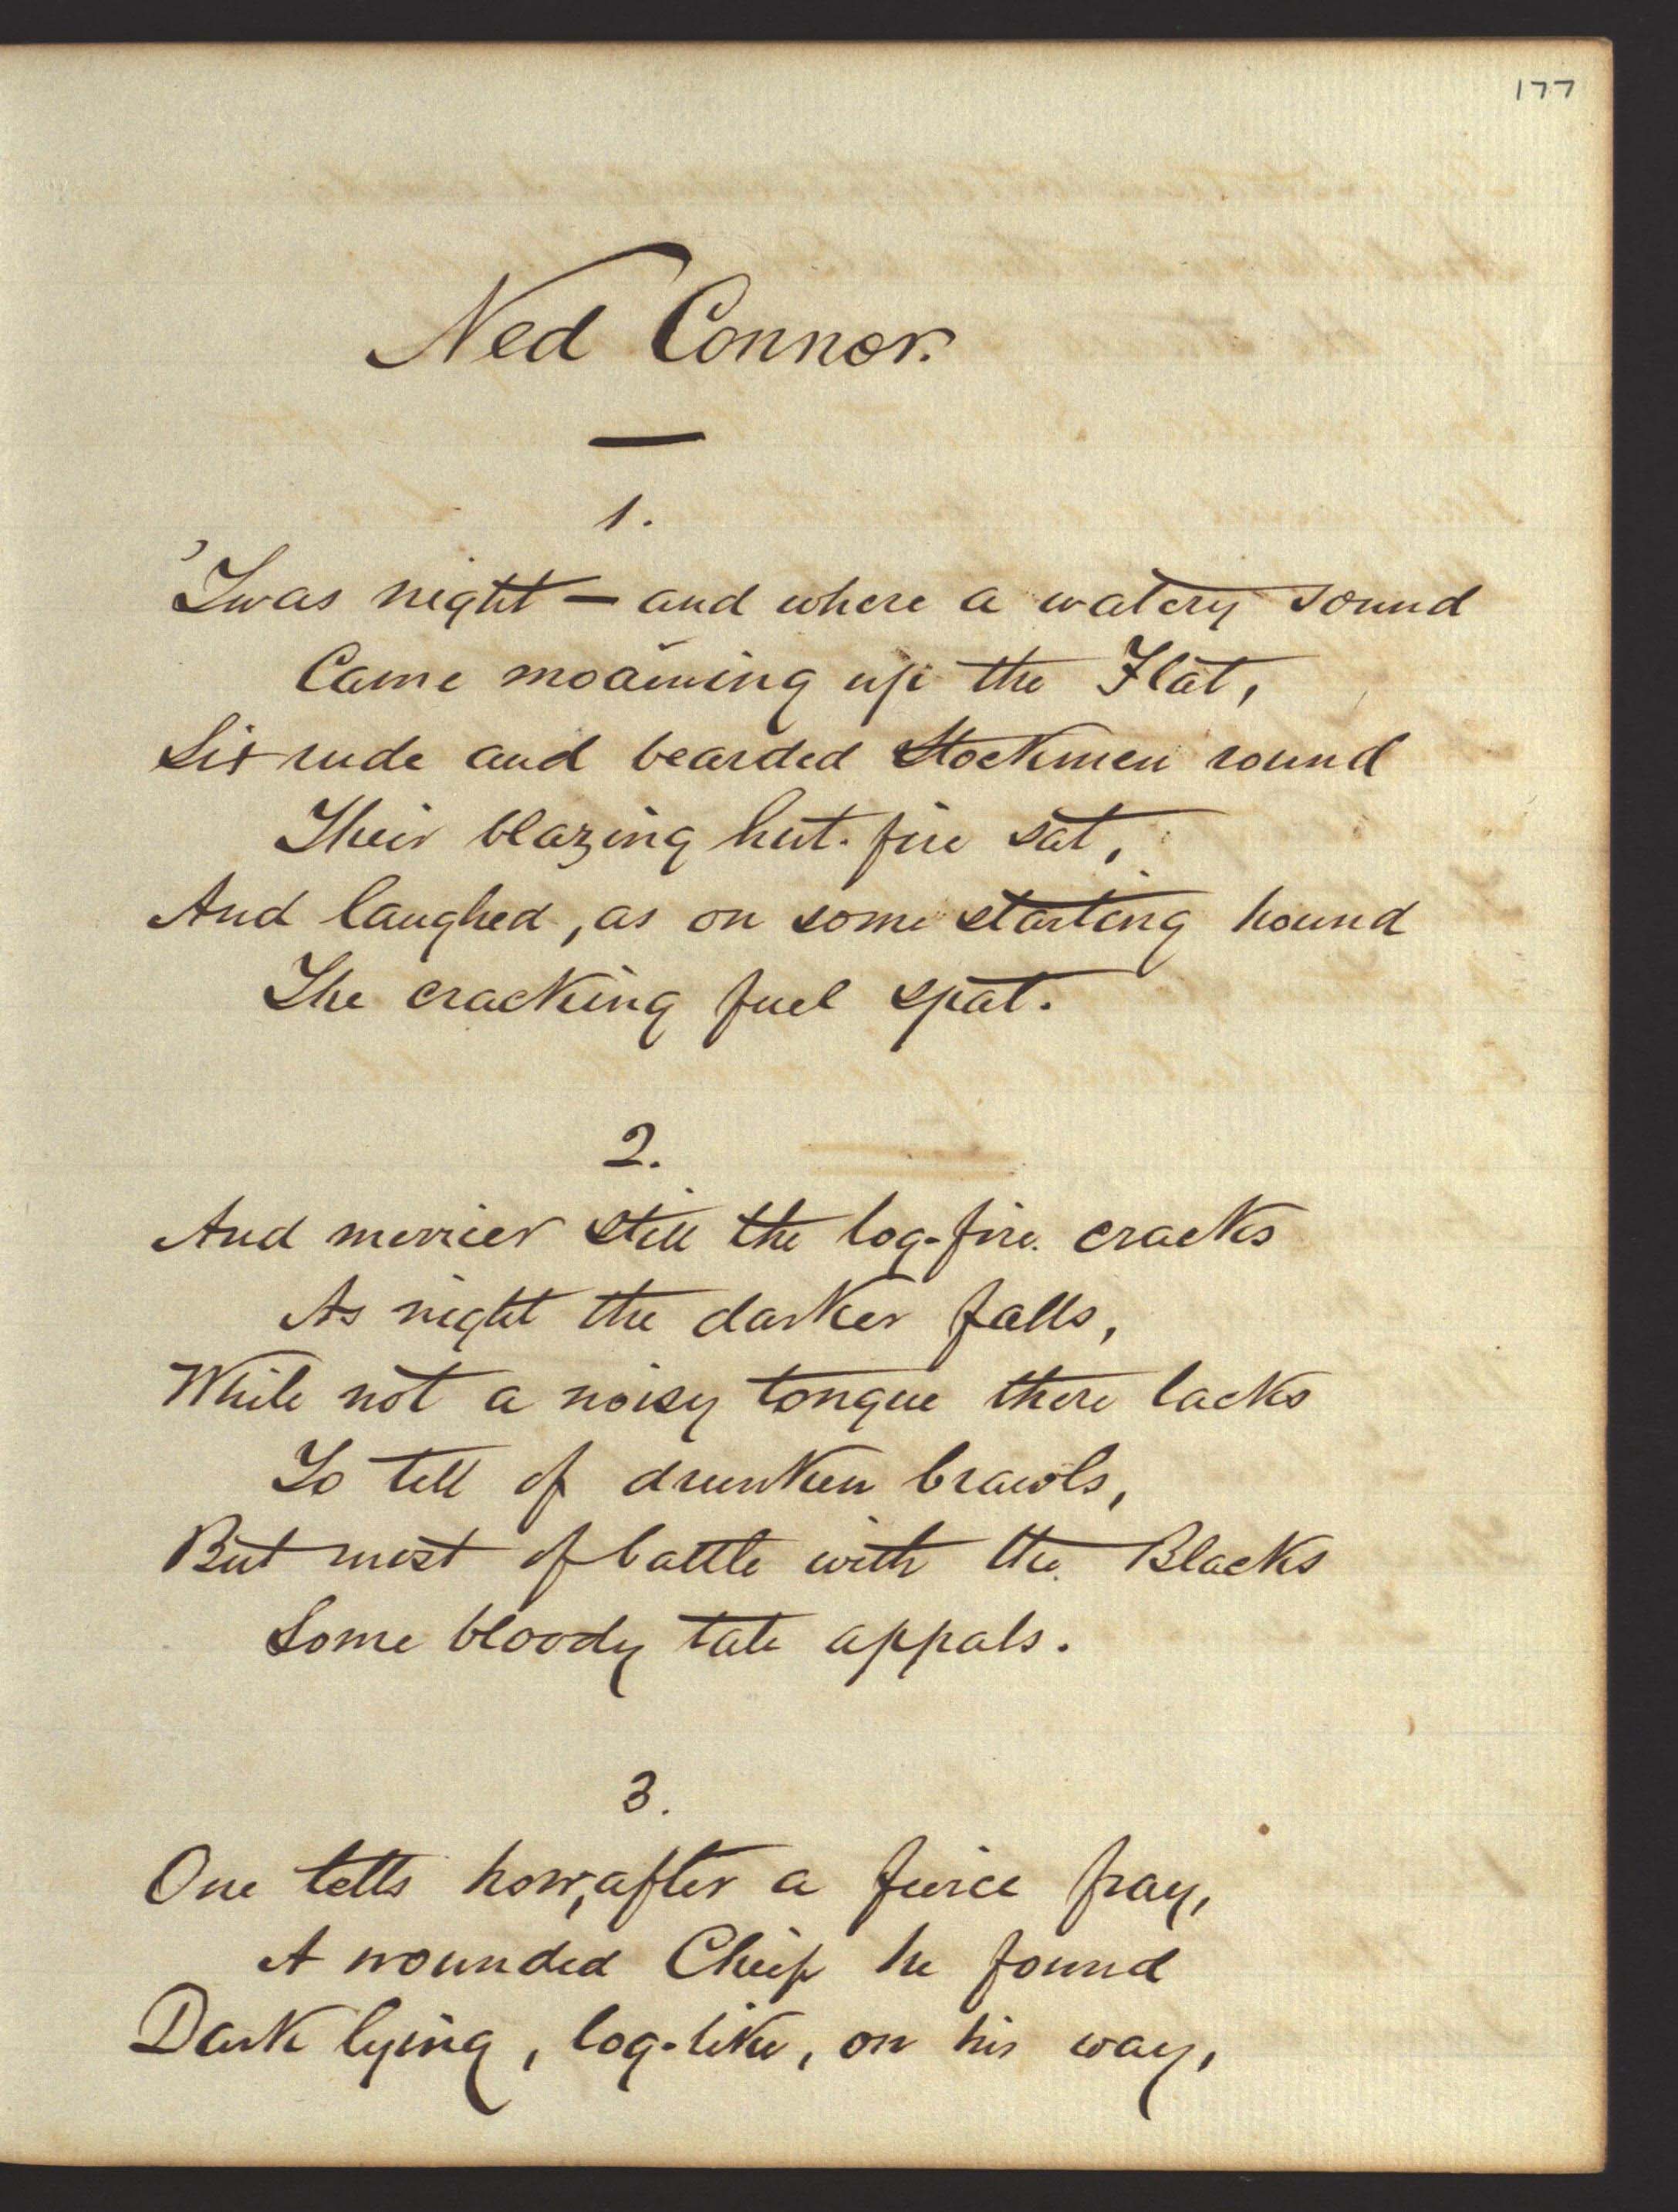 177
Ned Connor.
1.
'Twas night — and where a watery sound
Came moaning up the Flat,
Six rude and bearded Stockmen round
Their blazing hut-fire sat,
And laughed, as on some starting hound
The cracking fuel spat.
2.
And merrier still the log-fire cracks
As night the darker falls,
While not a noisy tongue there lacks
To tell of drunken brawls,
But most of battle with the Blacks
Some bloody tale appals.
3.
One tells how, after a fierce fray,
A wounded Chief he found
Dark lying, log-like, on his way,